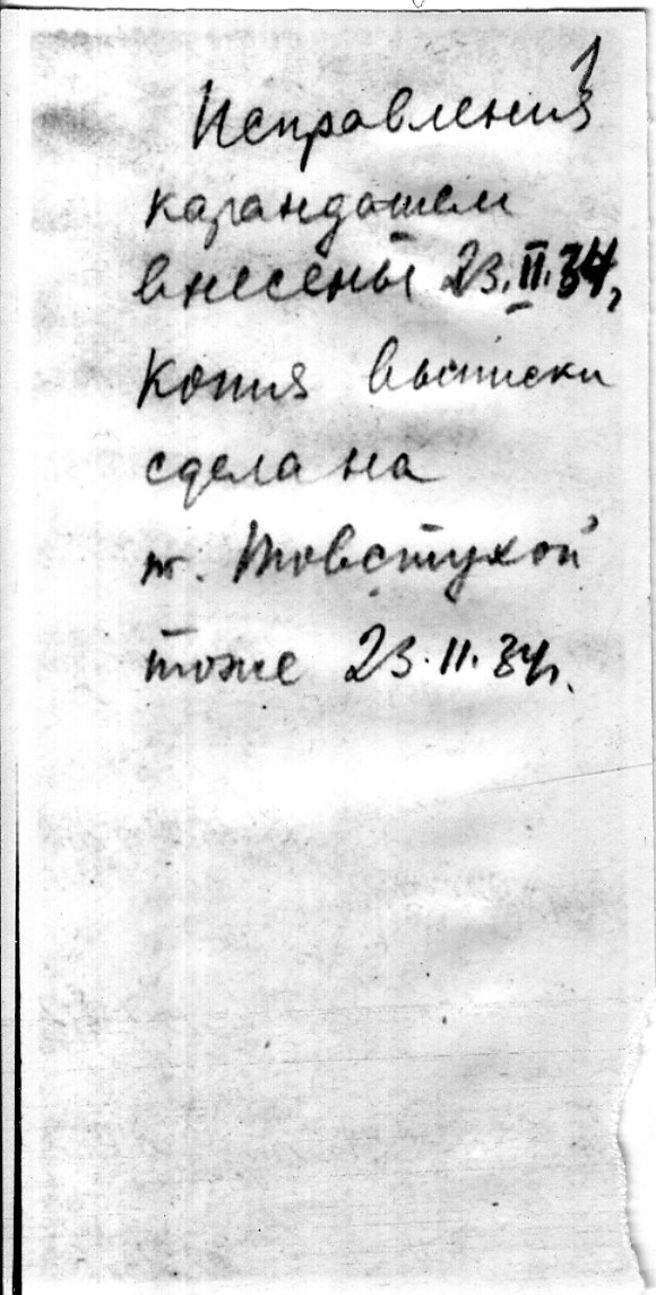 1
Исправления
карандашем
внесены 23.II.34,
Копия выписки
сделана
т. Товстухой
тоже 23.II.34г.